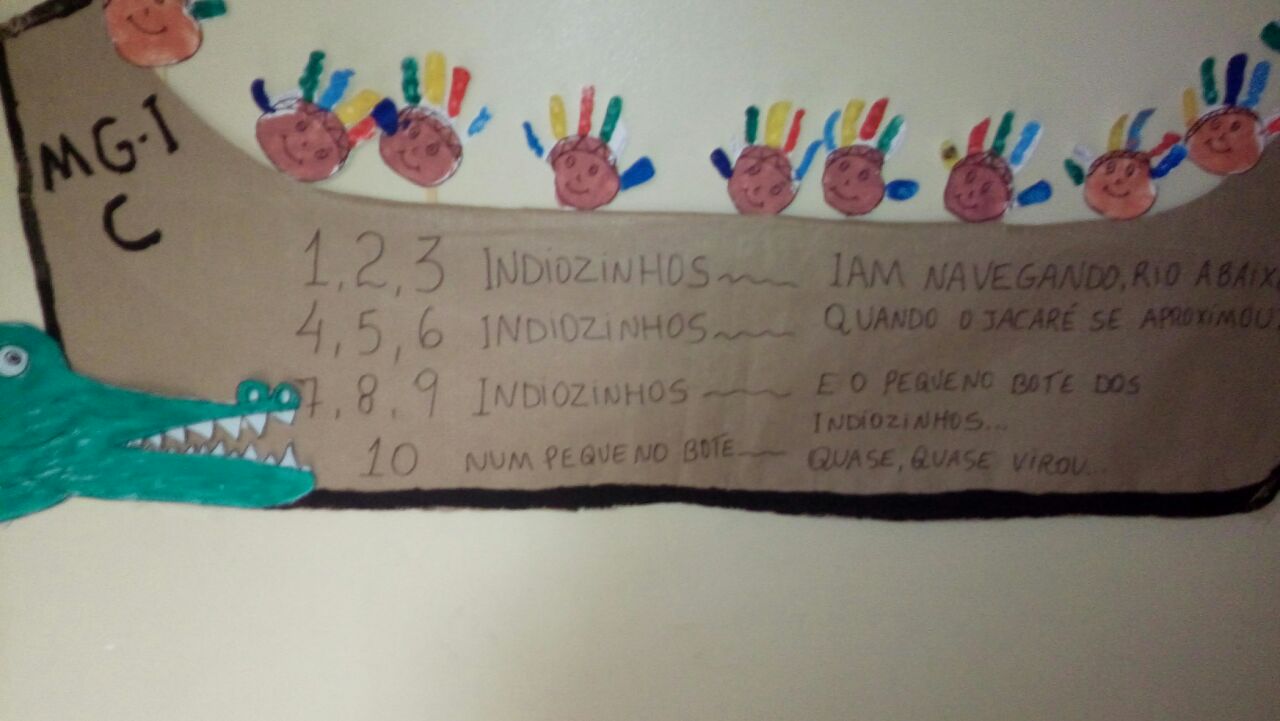 MG-I
C
1, 2, 3 INDIOZINHOS
4, 5, 6 INDIOZINHOS
7, 8, 9 INDIOZINHOS
10 NUM PEQUENO BOTE
IAM NAVEGANDO, RIO ABAIX
QUANDO O JACARÉ SE APROXIMOU
E O PEQUENO BOTE DOS
INDIOZINHOS...
QUASE, QUASE VIROU...